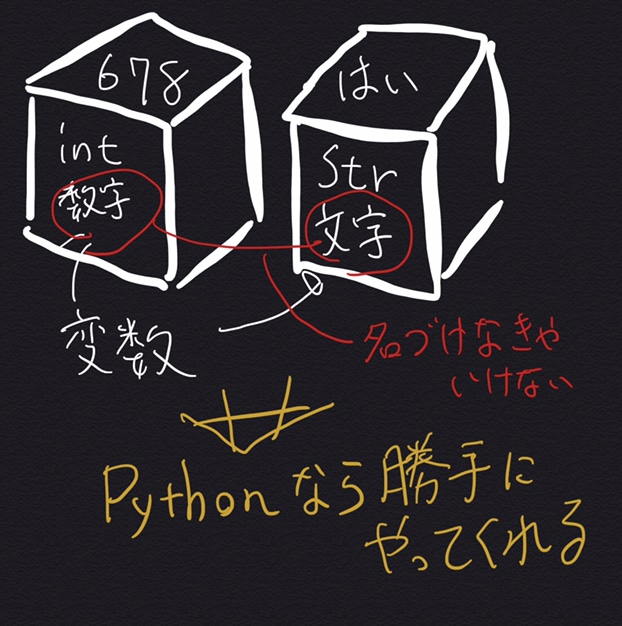 678
はい
int
数字
str
文字
変数
名づけなきゃ
いけない
Pythonなら勝手に
やってくれる